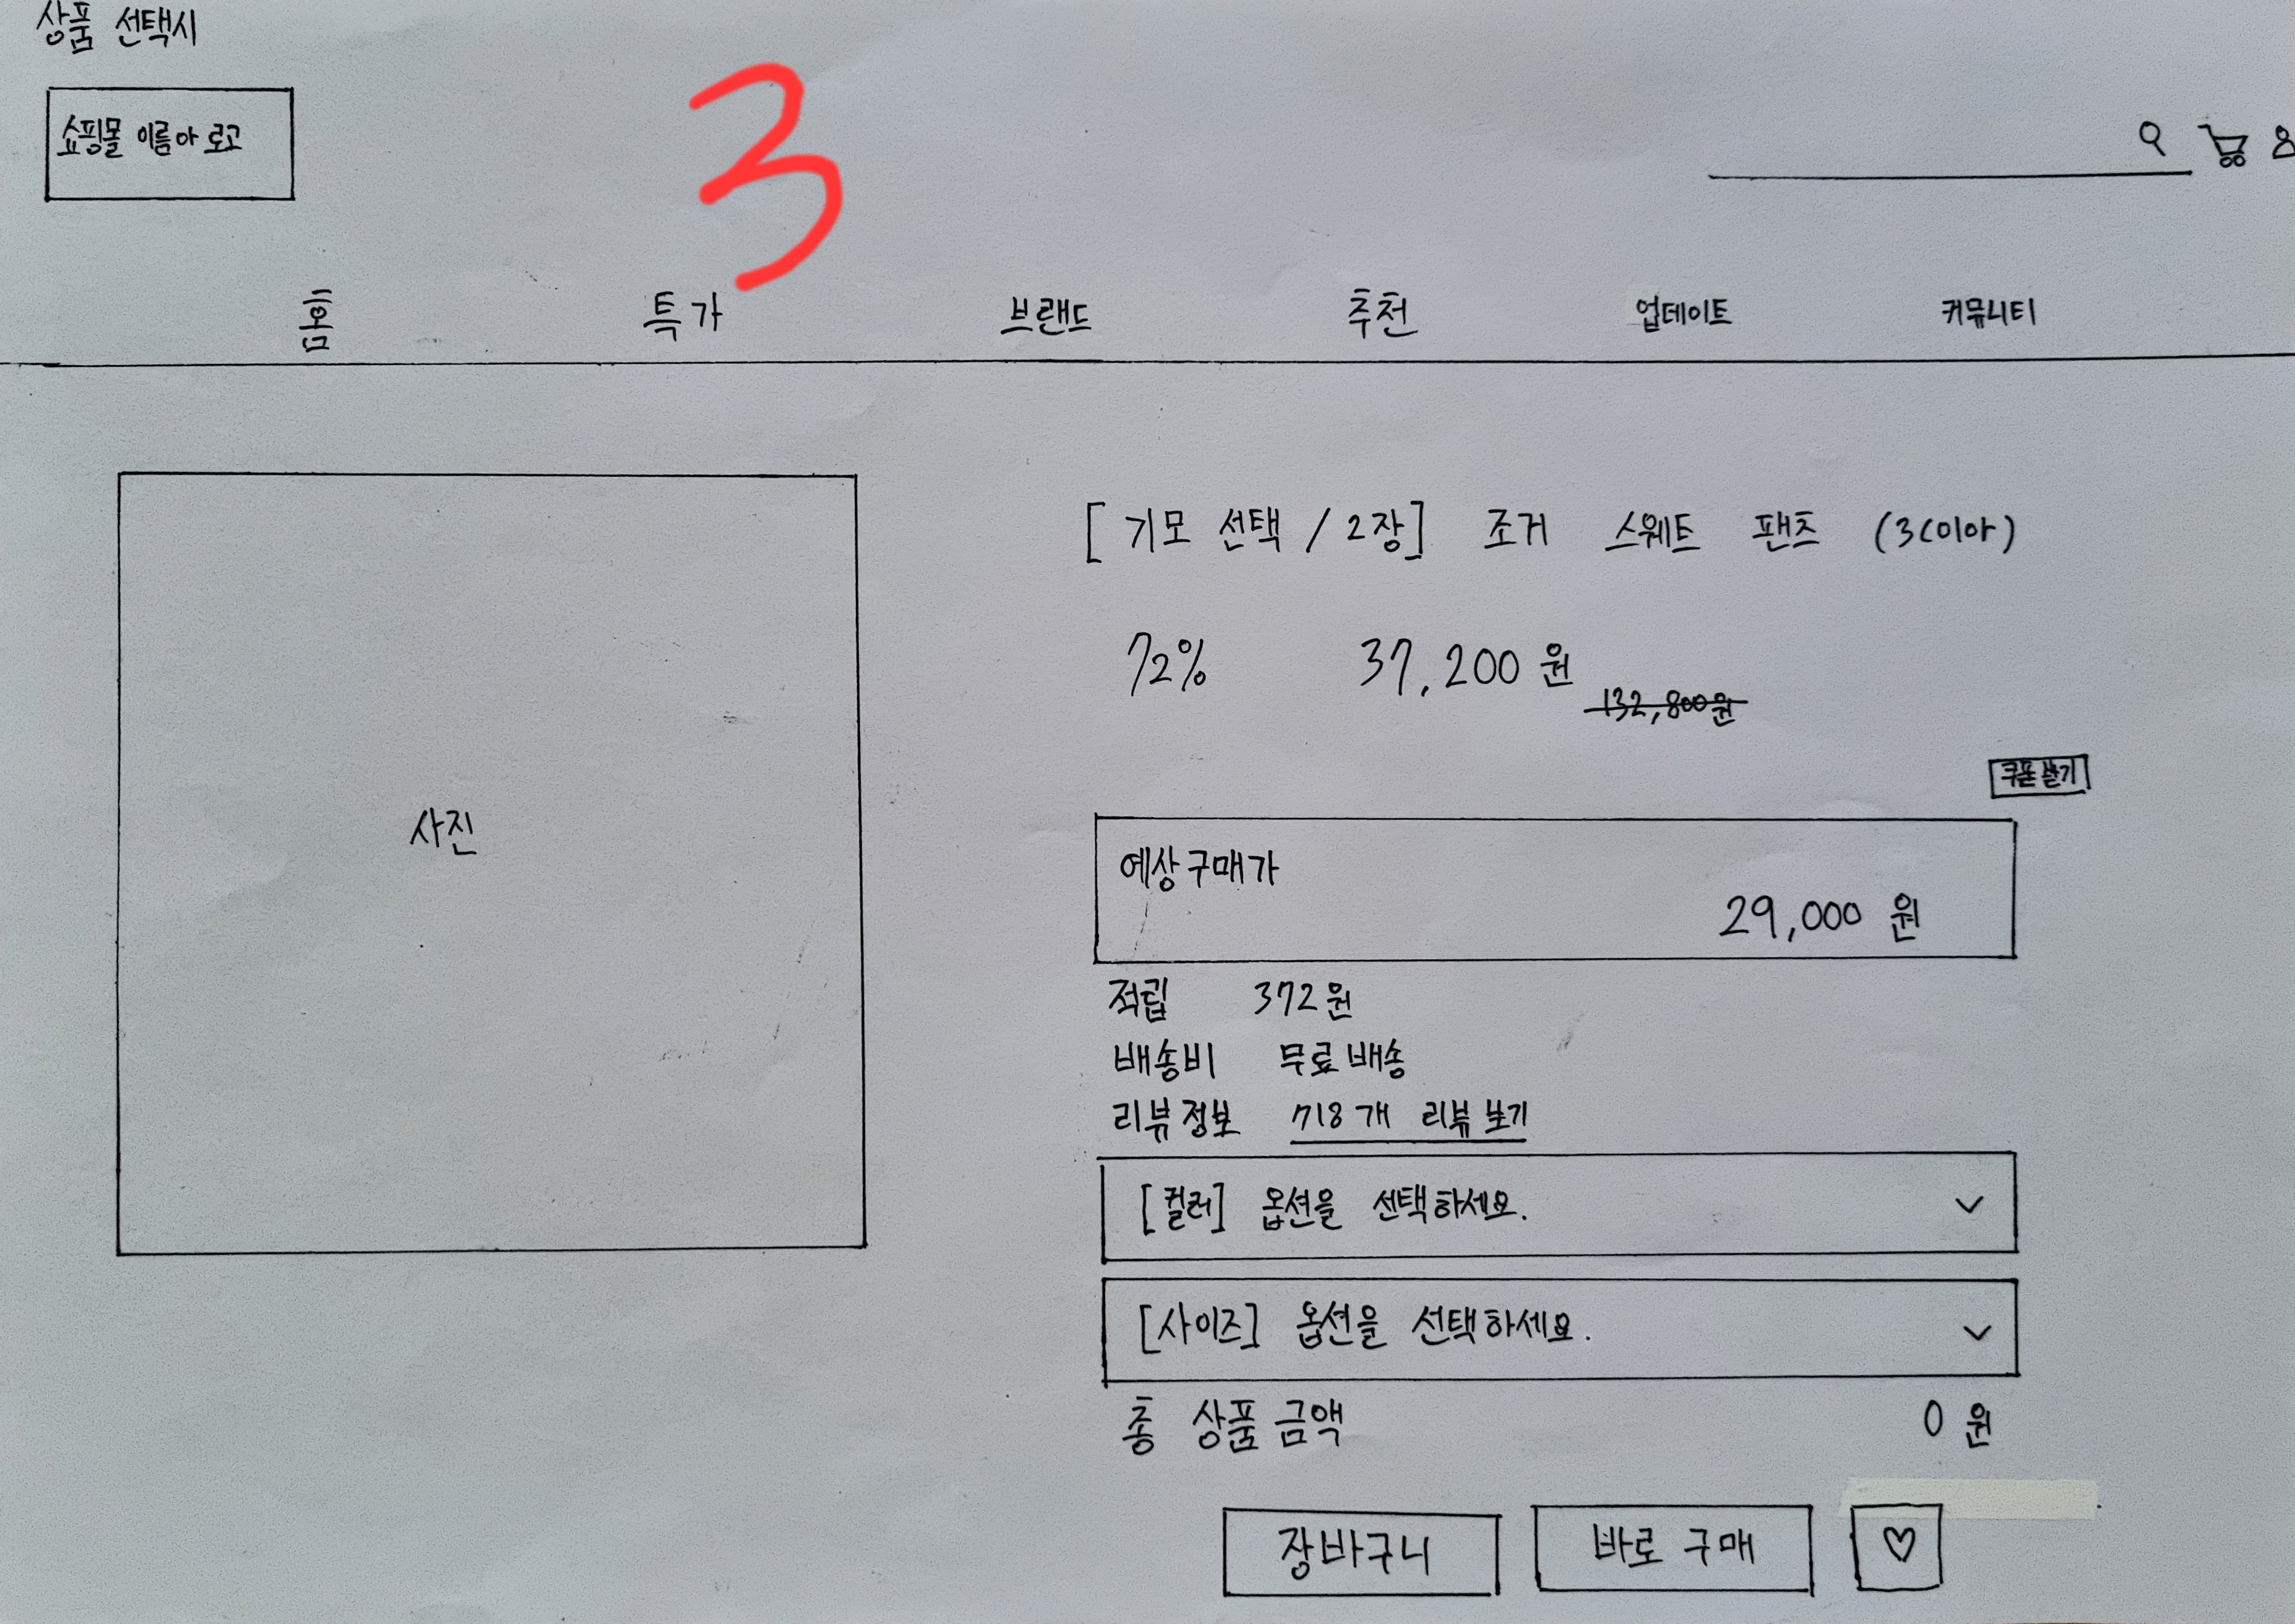 상품 선택시
쇼핑몰 이름아 로고
3
홈 특가 브랜드 추천 업데이트 커뮤니티
사진
[기모 선택 / 2장] 조거 스웨트 팬츠
72% 37,200원
132,800원
쿠폰 받기
예상구매가
29,000 원
적립 372원
배송비 무료배송
리뷰정보 718개 리뷰 보기
[컬러] 옵션을 선택하세요.
[사이즈] 옵션을 선택하세요.
총 상품금액 0 원
장바구니 바로 구매